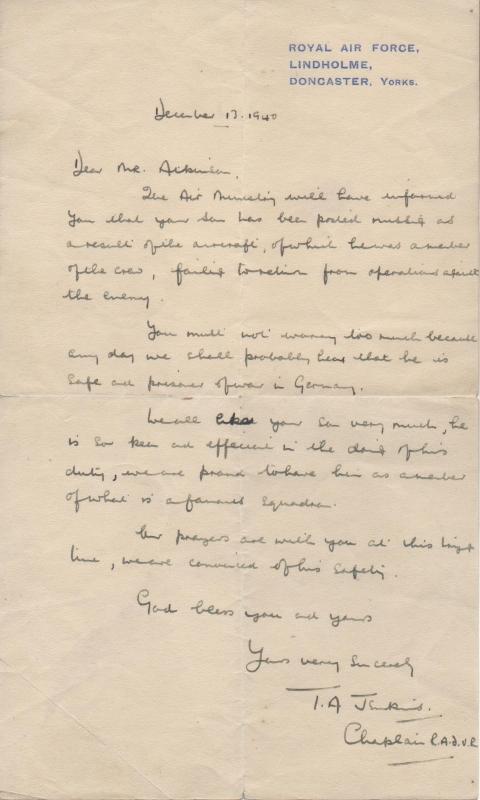 ROYAL AIR FORCE,
LINDHOLME,
DONCASTER, YORKS.
December 13. 1940
Dear Mr. Atkinson,
The Air Ministry will have informed
you that your son has been posted missing as
a result of the aircraft, of which he was a member
of the crew, failing to return from operations against
the enemy.
You must not worry too much because
any day we shall probably hear that he is
safe and prisoner of war in Germany.
We all like your son very much, he
is so keen and efficient in the doing of his
duty, we are proud to have him as a member
of what is a famous Squadron.
Our prayers are with you at this
time, we are convinced of his safety.
God bless you and yours
Yours very sincerely
T.A Jenkins.
Chaplain R.A.F.V.R